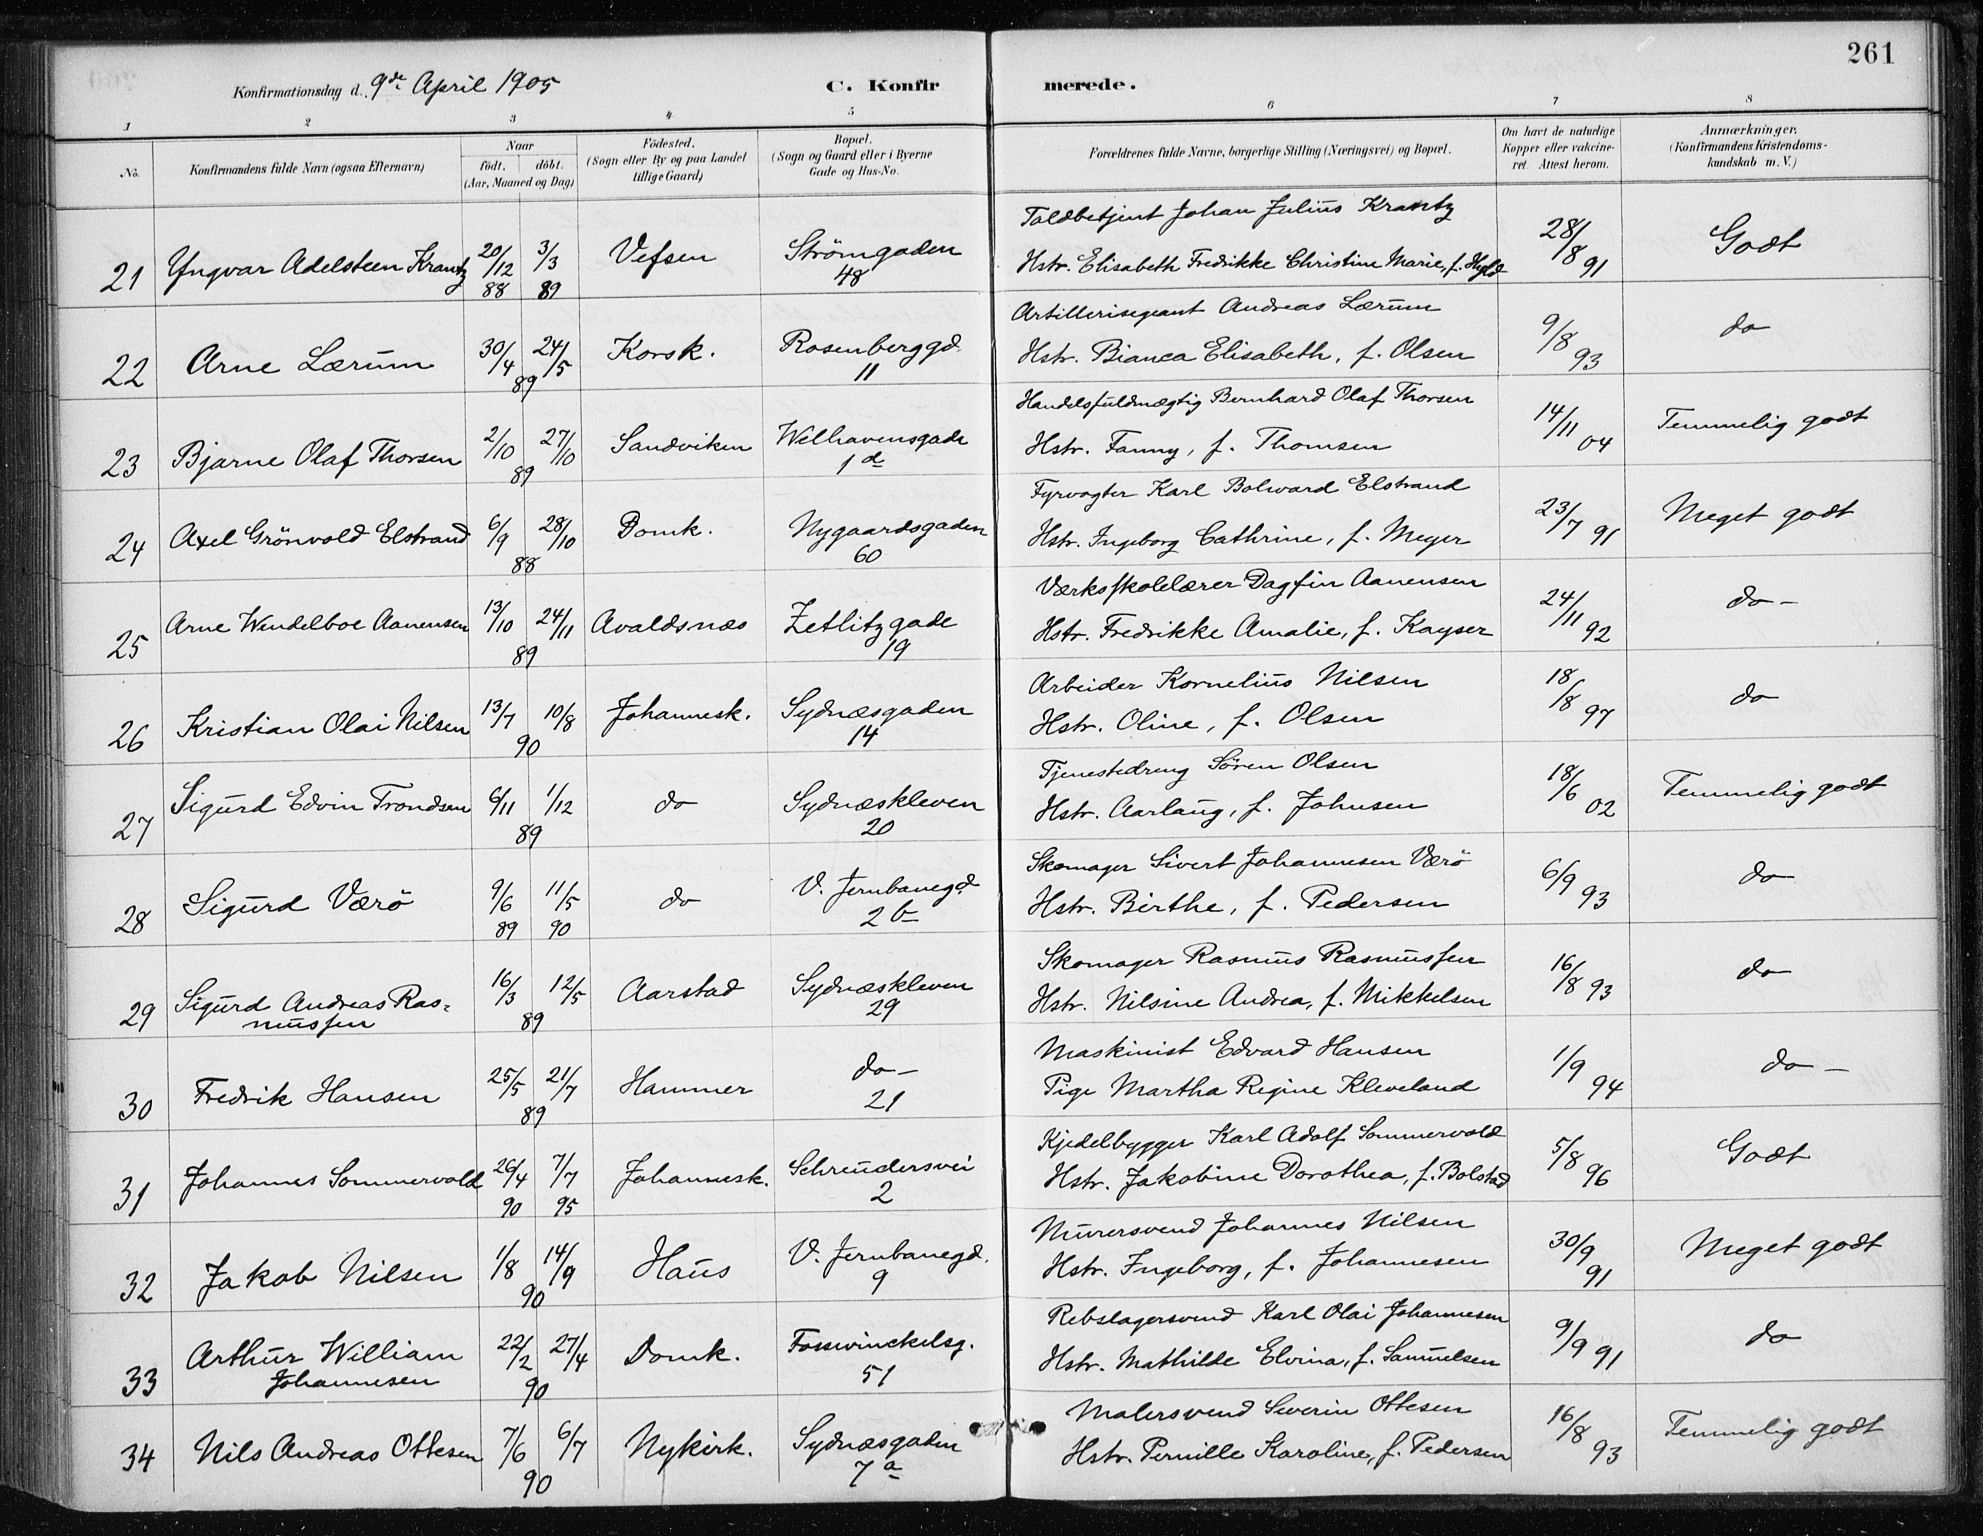 261
Konfirmationsdag d. 9de April 1905
C. Konfirmerede.
1 2 3 4 5 6 7 8
No.
Konfirmandens fulde Navn (ogsaa Efternavn)
Naar
født. døbt.
(Aar, Maaned og Dag)
Fødested.
(Sogn eller By og paa Landet
tillige Gaard)
Bopæl.
(Sogn og Gaard eller i Byerne
Gade og Hus-No.
Forældrenes fulde Navne, borgerlige Stilling (Næringsvei) og Bopæl.
Om havt de naturlige
Kopper eller vakcine-
ret. Attest herom.
Anmærkninger.
(Konfirmandens Kristendoms-
kundskab m. V.)
Toldbetjent Johan Julius Krantz
21 Yngvar Adelsteen Krantz 20/12 88 3/3 89 Vefsen Strömgaden 48 Hstr. Elisabeth Fredrikke Christine Marie, f. 28/8 91 Godt
Artillerisegeant Andreas Lærum
22 Arne Lærum 30/4 24/5 89 Korsk. Rosenberggd. 11 Hstr. Bianca Elisabeth, f. Olsen 9/8 93 do
Handelsfuldmægtig Bernhard Olaf Thorsen
23 Bjarne Olaf Thorsen 2/10 27/10 89 Sandviken Welhavensgade 1 d Hstr. Fanny, f. Thomsen 14/11 04 Temmelig godt
Fyrvogter Karl Bolward Elstrand
24 Axel Grönvold Elstrand 6/9 28/10 88 Domk. Nygaardsgaden 60 Hstr. Ingeborg Cathrine, f. Meyer 23/7 91 Meget godt
Værksskolelærer Dagfin Aanensen
25 Arne Wendelboe Aanensen 13/10 24/11 89 Avaldsnæs Zetlitzgade 19 Hstr. Fredrikke Amalie, f. Kayser 24/11 92 do –
Arbeider Kornelius Nilsen
26 Kristian Olai Nilsen 13/7 10/8 90 Johannesk. Sydnæsgaden 14 Hstr. Oline, f. Olsen 18/8 97 do
Tjenestedreng Sören Olsen
27 Sigurd Edvin Trondsen 6/11 1/12 89 do Sydnæskleven 20 Hstr. Aarlaug, f. Johnsen 18/6 02 Temmelig godt
Skomager Sivert Johannesen Værö
28 Sigurd Værö 9/6 89 11/5 90 do V. Jernbanegd. 2 b Hstr. Birthe, f. Pedersen 6/9 93 do
Skomager Rasmus Rasmussen
29 Sigurd Andreas Ras-
mussen 16/3 12/5 89 Aarstad Sydnæskleven 29 Hstr. Nilsine Andrea, f. Mikkelsen 16/8 93 do
Maskinist Edvard Hansen
30 Fredrik Hansen 25/5 21/7 89 Hammer do – 21 Pige Martha Regine Kleveland 1/9 94 do –
Kjedelbygger Karl Adolf Sommervold
31 Johannes Sommervold 26/4 90 7/7 95 Johannesk. Schreudersvei 2 Hstr. Jakobine Dorothea, f. Bolstad 5/8 96 Godt
Murersvend Johannes Nilsen
32 Jakob Nilsen 1/8 14/9 90 Haus V. Jernbanegd. 9 Hstr. Ingeborg, f. Johannesen 30/9 91 Meget godt
Rebslagersvend Karl Olai Johannesen
33 Arthur William
Johannesen 22/2 27/4 90 Domk. Fosswinckelsg. 51 Hstr. Mathilde Elvina, f. Samuelsen 9/9 91 do
Malersvend Severin Ottesen
34 Nils Andreas Ottesen 7/6 6/7 90 Nykirk. Sydnæsgaden 7 a Hstr. Pernille Karoline, f. Pedersen 16/8 93 Temmelig godt